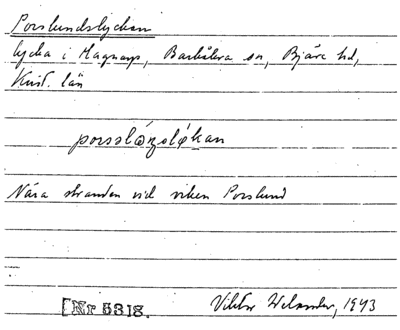 Porslundslyckan
lycka i Magnarp, Barkåkra sn, Bjäre hd,
Krist. län
porsslǫ́ŋslǫ̀kan
Nära stranden vid viken Porslund
[Nr 5318. Viktor Welander, 1943